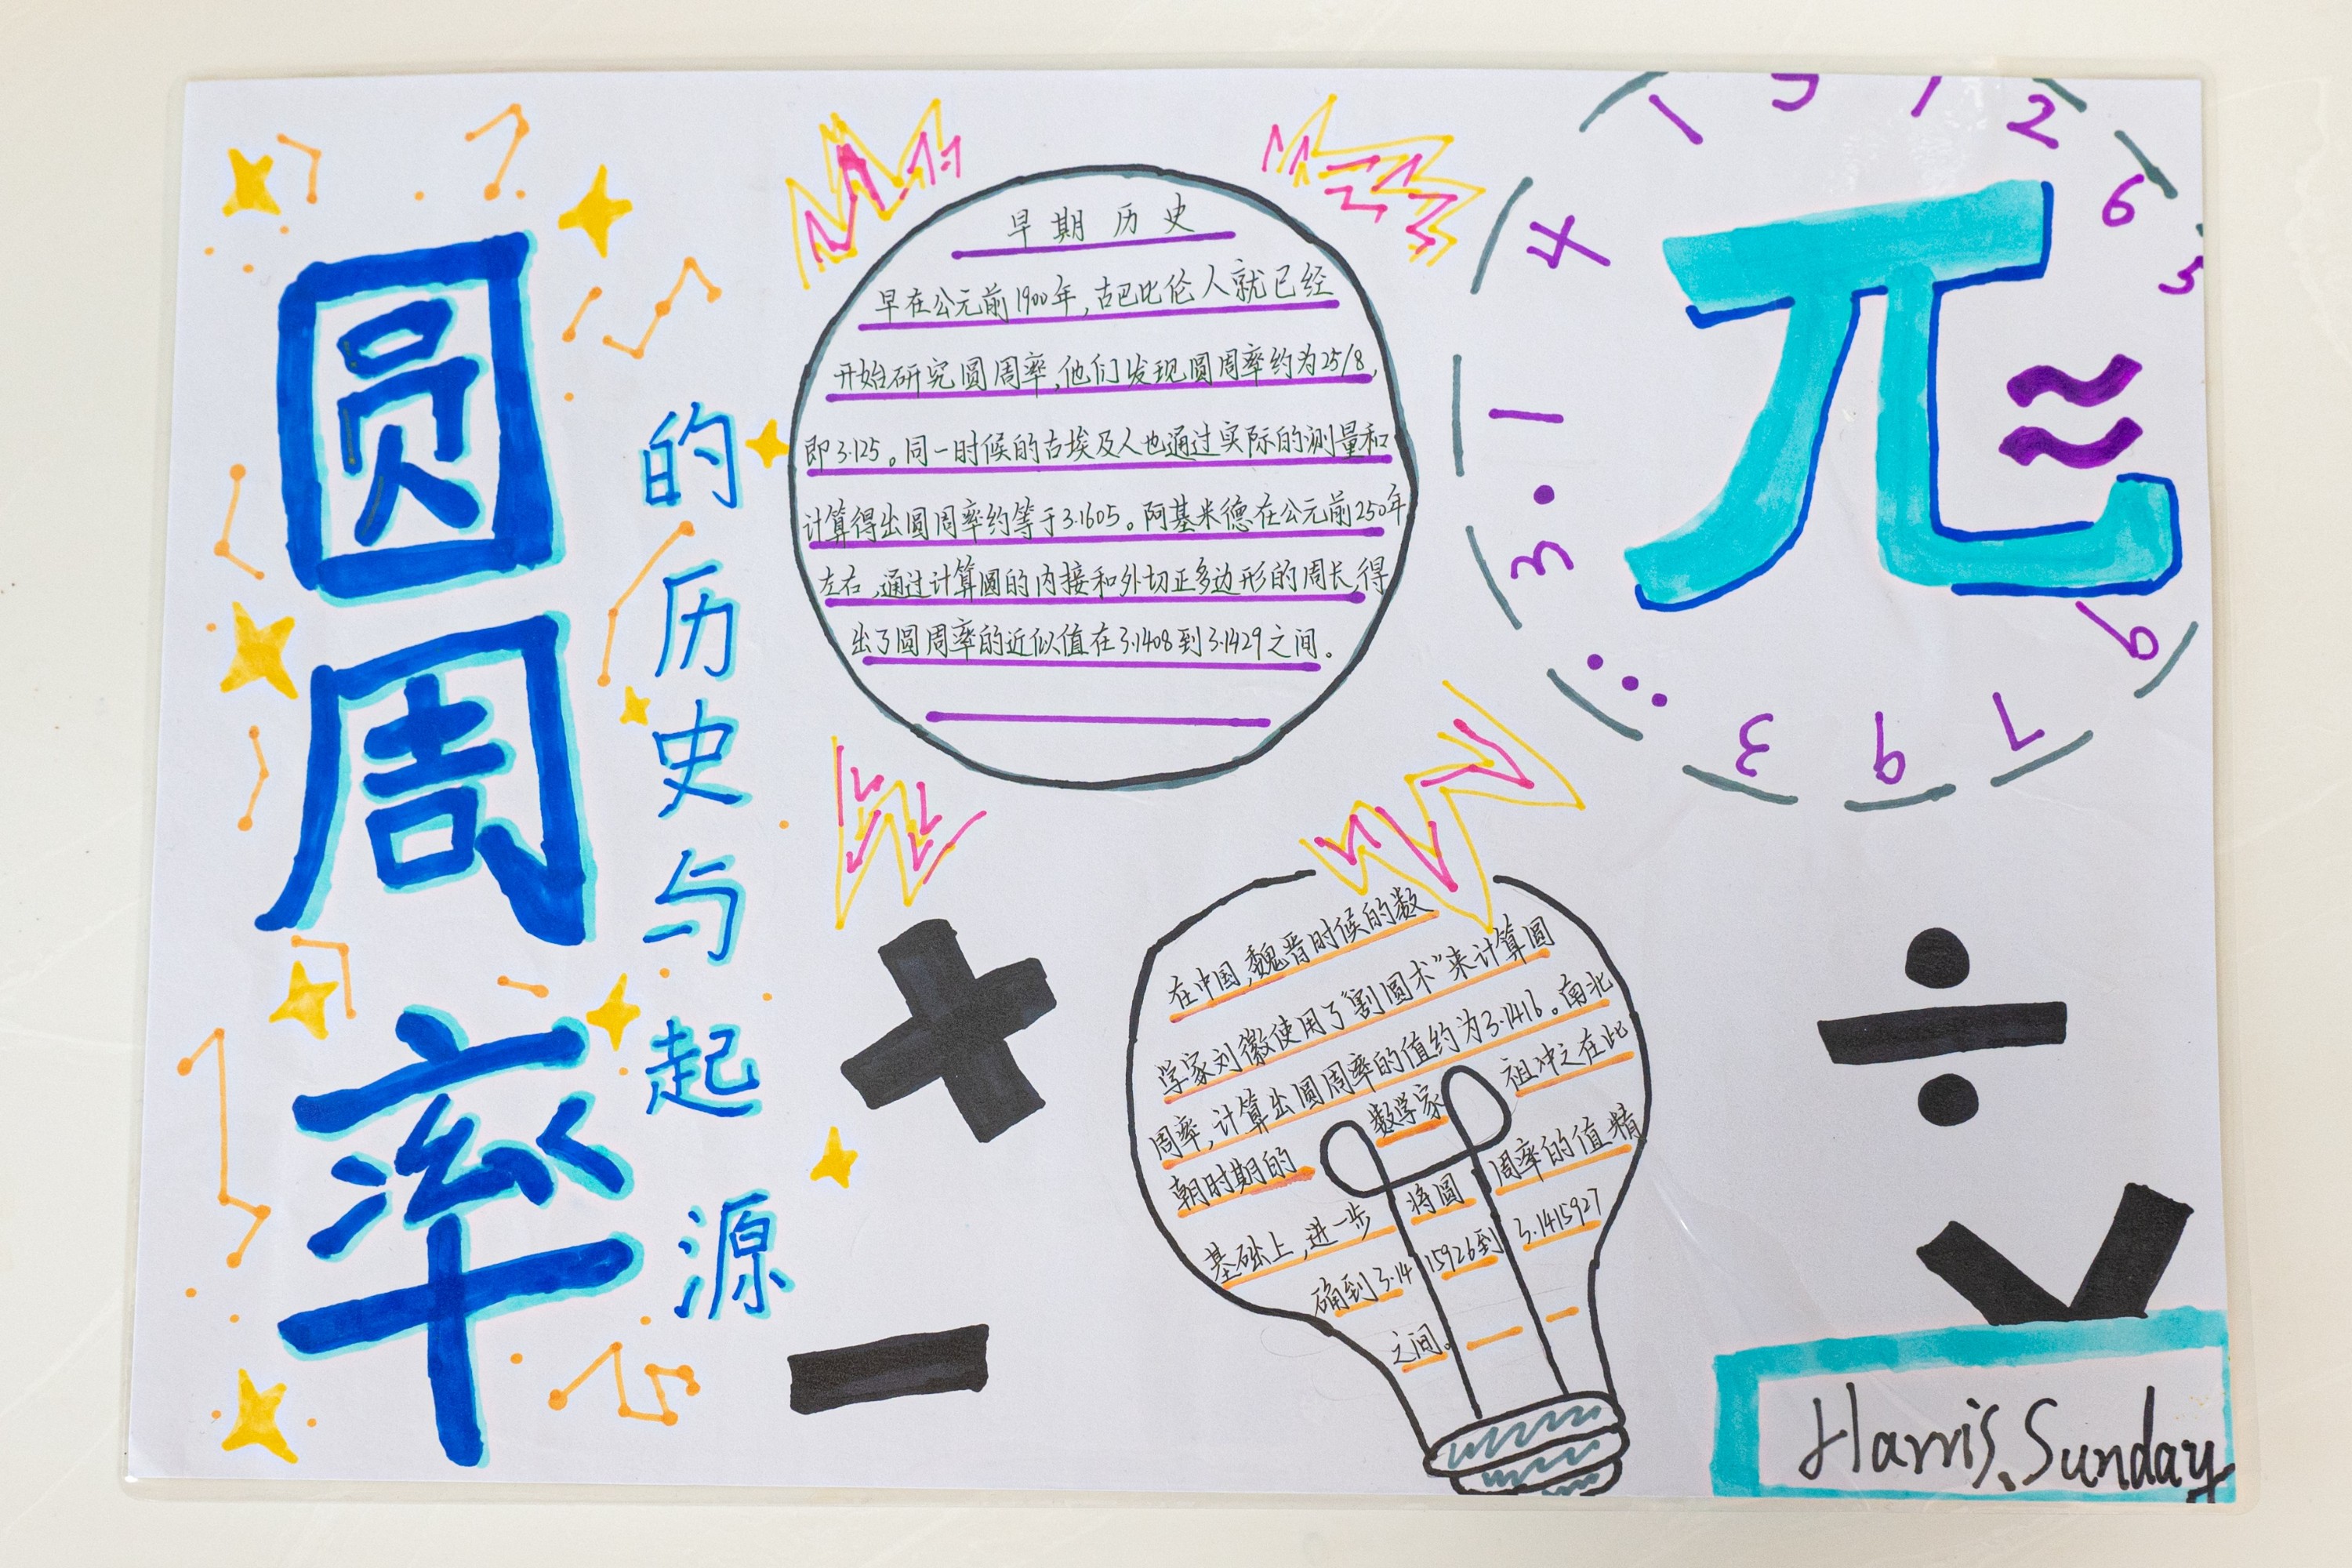 圆周率
的历史与起源
早期历史
早在公元前1900年,古巴比伦人就已经
开始研究圆周率,他们发现圆周率约为25/8,
即3.125。同一时候的古埃及人也通过实际的测量和
计算得出圆周率约等于3.1605。阿基米德在公元前250年
左右,通过计算圆的内接和外切正多边形的周长得
出了圆周率的近似值在3.1408到3.1429之间。
π≈
3.141
265
9793...
在中国,魏晋时候的数
学家刘徽使用了“割圆术”来计算圆
周率,计算出圆周率的值约为3.1416。南北
朝时期的数学家祖冲之在此
基础上,进一步将圆周率的值精
确到3.1415926到3.1415927
之间。
+
-
÷
Harris.Sunday